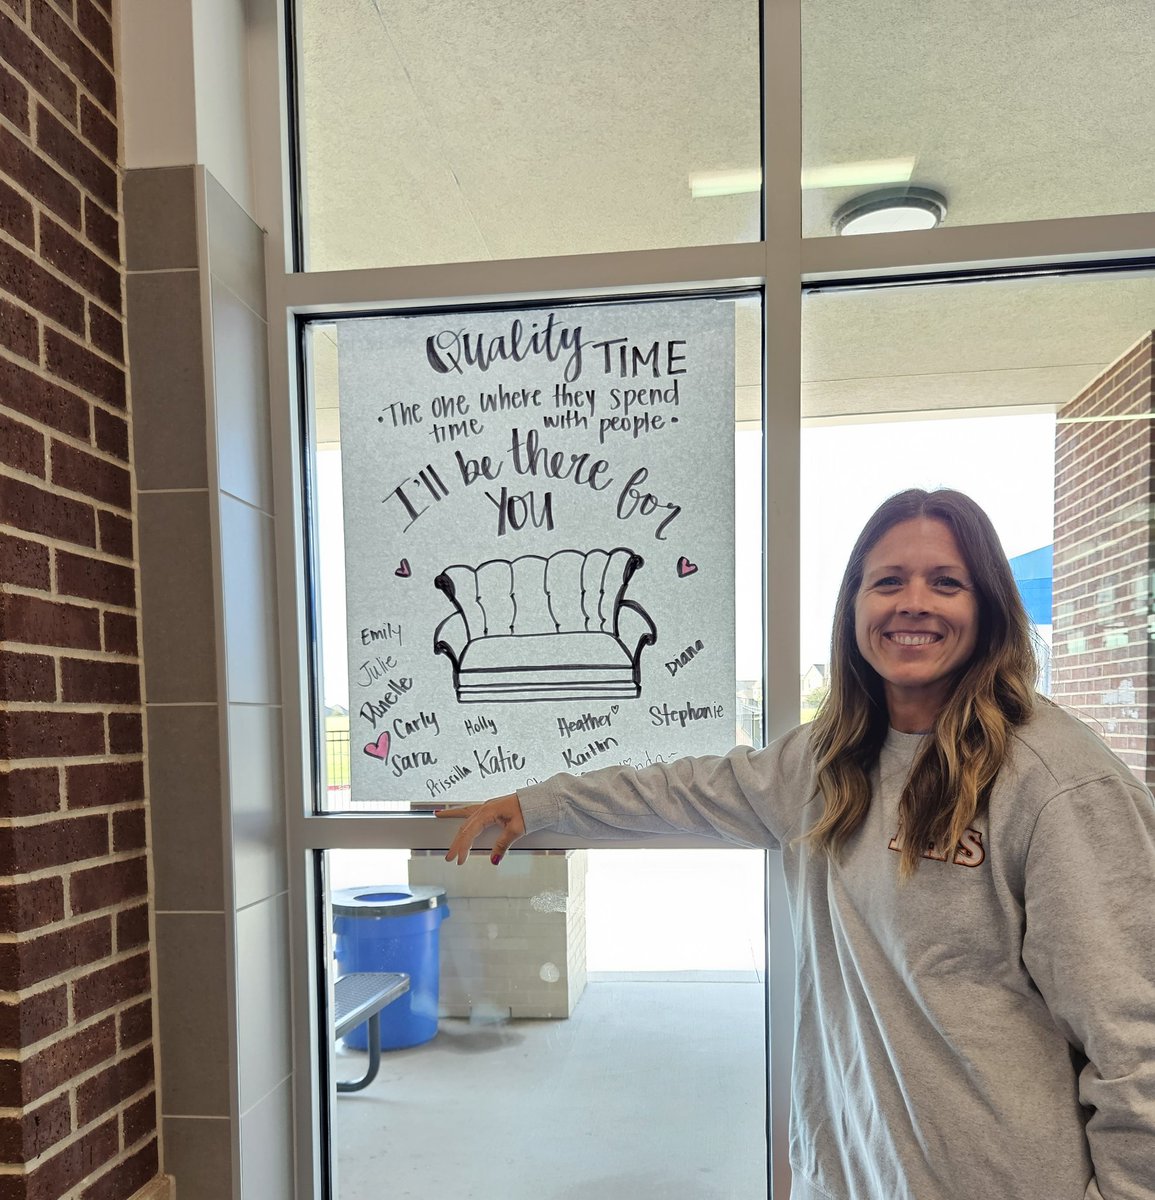 Quality TIME
•The one where they spend
time with people•
I'll be there for
YOU
Emily
Julie
Danelle
Diana
Carly
Holly
Heather
Stephanie
Sara
Priscilla
Katie
Kaitlin